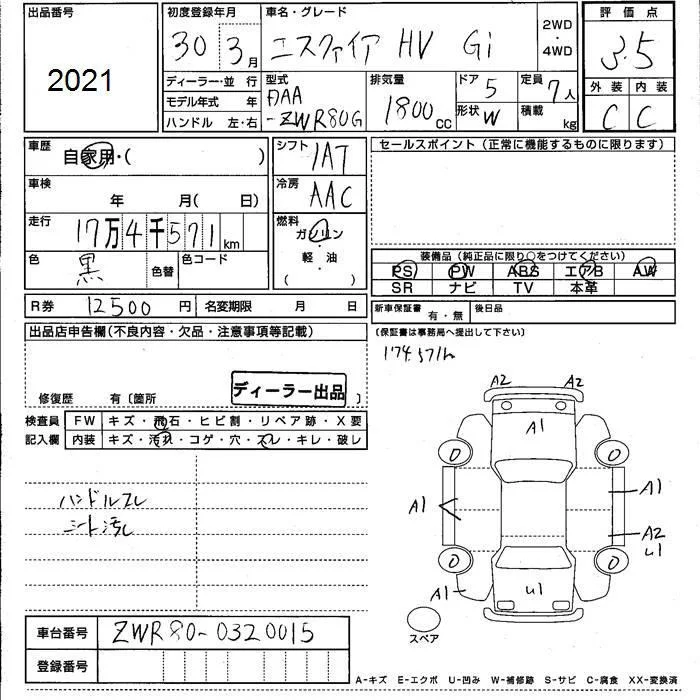 出品番号
2021
初度登録年月
30 3月
車名・グレード
エスクァイア HV Gi
2WD
・
4WD
評価点
3.5
外装 内装
C C
ディーラー・並行
モデル年式 年
ハンドル 左・右
型式
DAA
-ZWR80G
排気量
1800cc
ドア
5
形状 W
定員
7人
積載
kg
車歴
自家用・( )
車検
年 月( 日)
走行
17万4千571km
色
黒
色替
色コード
シフト
IAT
冷房
AAC
燃料
ガソリン
軽・油
( )
セールスポイント(正常に機能するものに限ります)
装備品(純正品に限り○をつけてください)
PS PW ABS エアB AW
SR ナビ TV 本革
R券 12500円 名変期限 月 日
新車保証書
有・無
後日品
(保証書は事務局へ提出して下さい)
出品店申告欄(不良内容・欠品・注意事項等記載)
修復歴 有〔箇所 〕
ディーラー出品
検査員
記入欄
FW キズ・飛石・ヒビ割・リペア跡・X要
内装 キズ・汚れ・コゲ・穴・スレ・キレ・破レ
ハンドルスレ
シート汚レ
174.571k
A2 A2
A1
0 0
A1 A1
A2
U1
0 0
A1 U1
スペア
車台番号 ZWR80-0320015
登録番号
A-キズ E-エクボ U-凹み W-補修跡 S-サビ C-腐食 XX-変換済